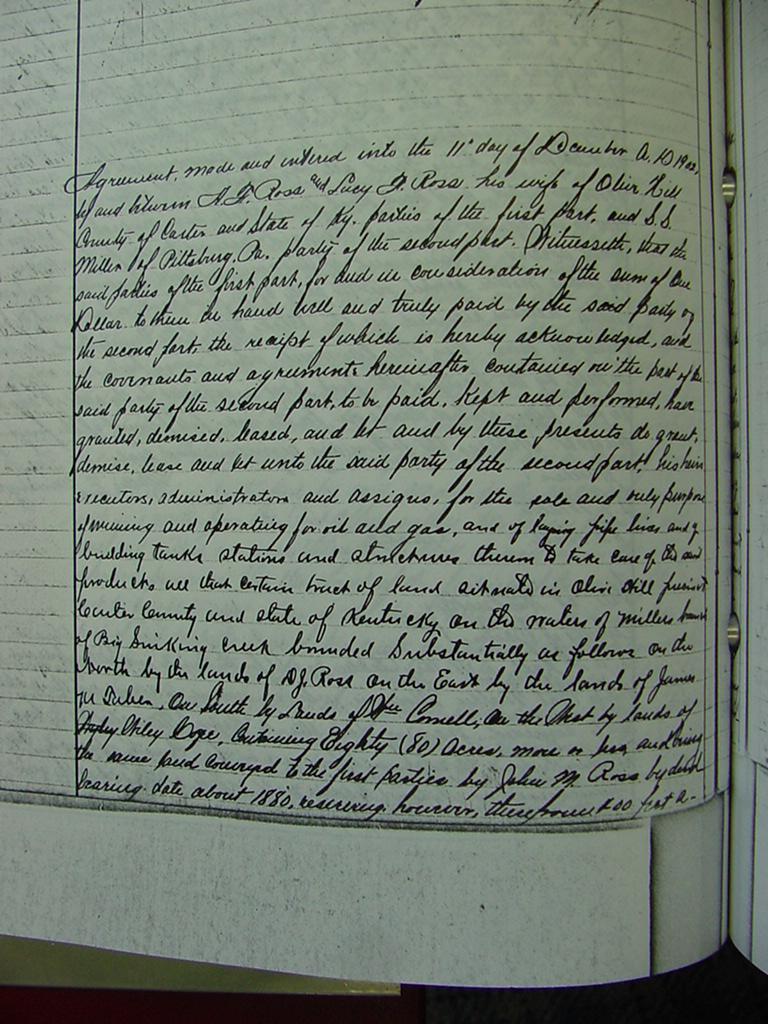 Agreement, made and entered into the 11" day of December A. D 190
by and between A. F. Ross and Lucy F. Ross his wife of Olive Hill
County of Carter and State of Ky. parties of the first part, and S. S.
Miller of Pittsburg, Pa. party of the second part. Witnesseth, that the
said parties of the first part, for and in consideration of the sum of One
Dollar to them in hand well and truly paid by the said party of
the second part, the receipt of which is hereby acknowledged, and
the covenants and agreements hereinafter contained on the part of the
said party of the second part, to be paid, kept and performed, have
granted, demised, leased, and let and by these presents do grant,
demise, lease and let unto the said party of the second part, his heirs
executors, administrators and assigns, for the sole and only purpose
of mining and operating for oil and gas, and of laying pipe lines and of
building tanks stations and structures thereon to take care of the said
products all that certain tract of land situate in Olive Hill precinct
Carter County and state of Kentucky on the waters of Millers branch
of Big Sinking creek bounded Substantially as follows on the
North by the lands of D. J. Ross on the East by the lands of James
On South by Lands of Wm Cornell, On the West by lands of
Wiley Containing Eighty (80) Acres, more or less, and being
the same land conveyed to the first parties by John M. Ross by deed
bearing date about 1880, reserving however, therefrom 200 feet a-